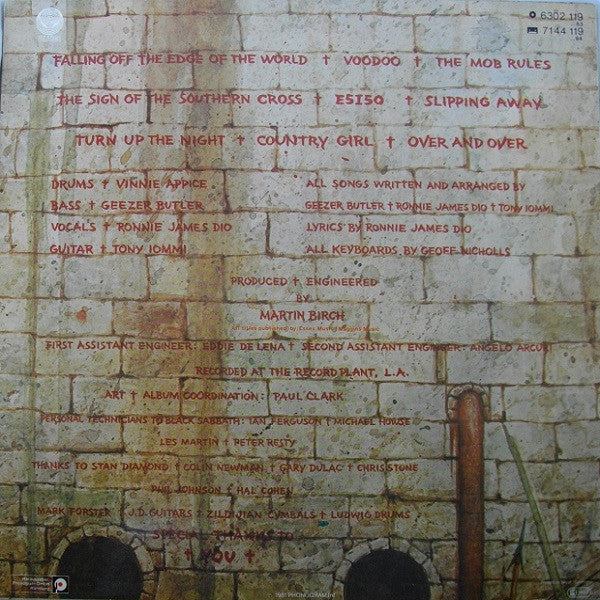 6302 119
7144 119
FALLING OFF THE EDGE OF THE WORLD † VOODOO † THE MOB RULES
THE SIGN OF THE SOUTHERN CROSS † E5150 † SLIPPING AWAY
TURN UP THE NIGHT † COUNTRY GIRL † OVER AND OVER
DRUMS † VINNIE APPICE
BASS † GEEZER BUTLER
VOCALS † RONNIE JAMES DIO
GUITAR † TONY IOMMI
ALL SONGS WRITTEN AND ARRANGED BY
GEEZER BUTLER † RONNIE JAMES DIO † TONY IOMMI
LYRICS BY RONNIE JAMES DIO
ALL KEYBOARDS BY GEOFF NICHOLLS
PRODUCED † ENGINEERED
BY
MARTIN BIRCH
All titles published by Essex Music
FIRST ASSISTANT ENGINEER: EDDIE DE LENA † SECOND ASSISTANT ENGINEER: ANGELO ARCURI
RECORDED AT THE RECORD PLANT, L.A.
ART † ALBUM COORDINATION: PAUL CLARK
PERSONAL TECHNICIANS TO BLACK SABBATH: IAN FERGUSON † MICHAEL HOWSE
LES MARTIN † PETER RESTY
THANKS TO STAN DIAMOND † COLIN NEWMAN † GARY DULAC † CHRIS STONE
PHIL JOHNSON † HAL COHEN
MARK FORSTER † J.D. GUITARS † ZILDJIAN CYMBALS † LUDWIG DRUMS
SPECIAL THANKS TO
† YOU †
1981 PHONOGRAM